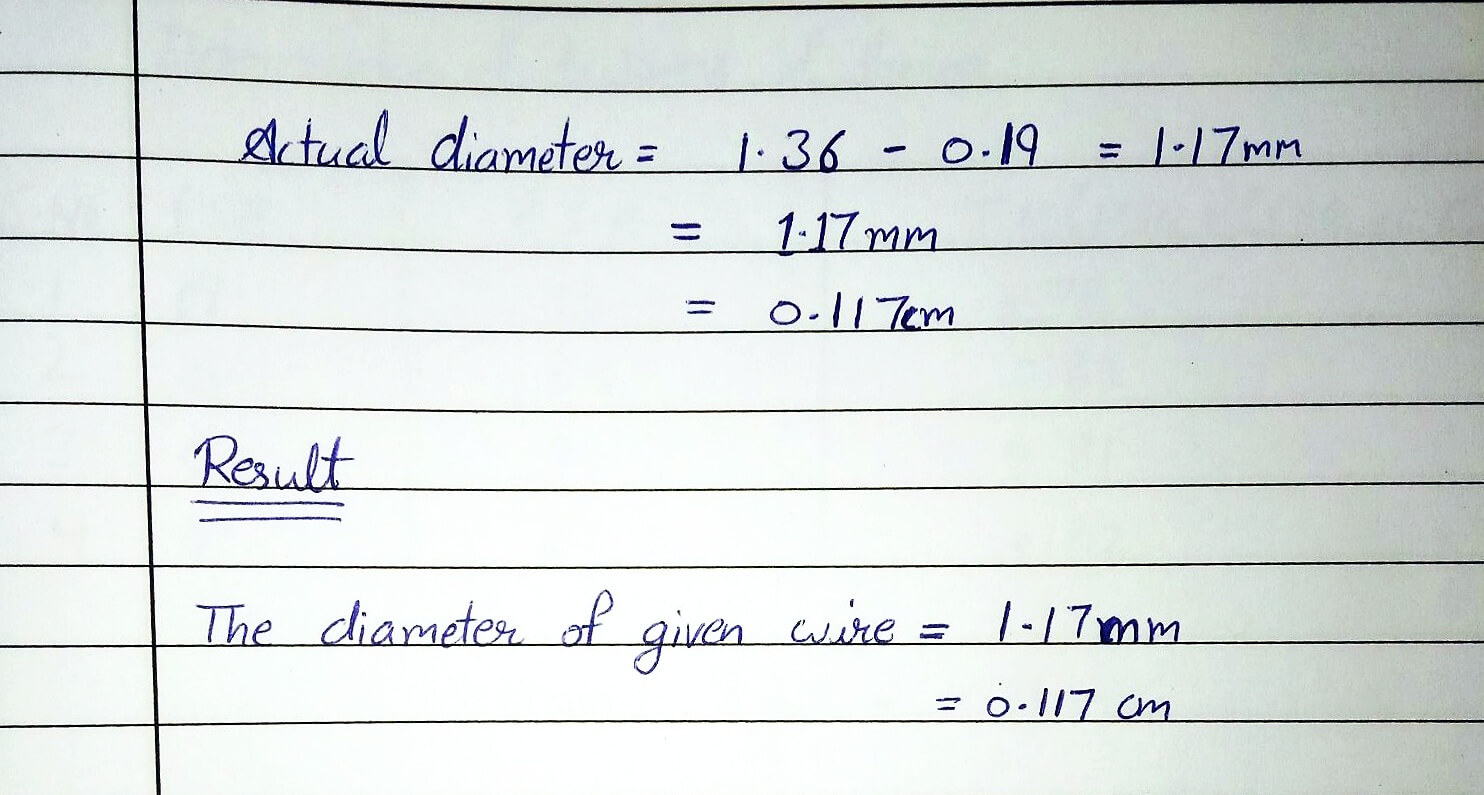 Actual diameter = 1.36 - 0.19 = 1.17mm
= 1.17mm
= 0.117cm
Result
The diameter of given wire = 1.17mm
= 0.117 cm